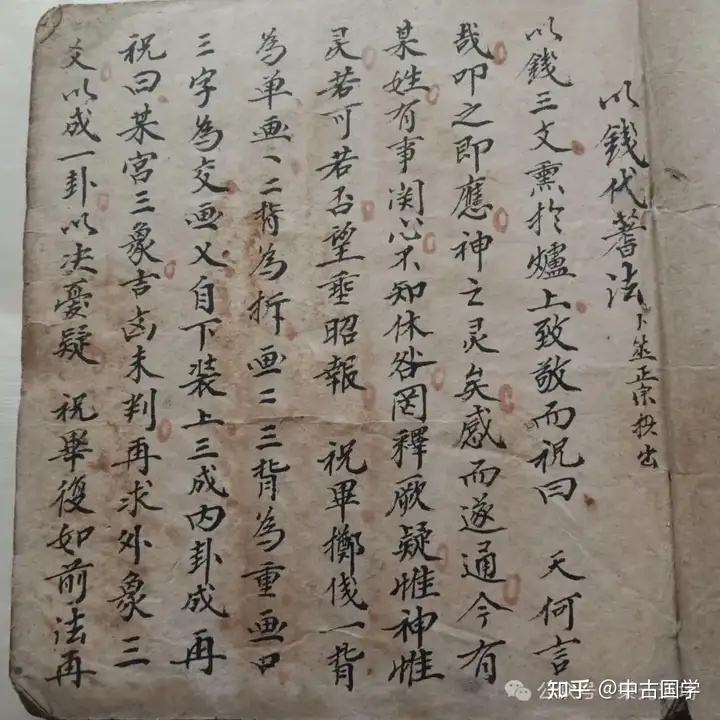 以錢代蓍法 卜筮正宗抄出
以錢三文熏扵爐上致敬而祝曰 天何言
哉叩之即應神之灵矣感而遂通今有
某姓有事関心不知休咎罔釋厥疑惟神惟
灵若可若否望垂昭報 祝畢擲伐一背
為单画丶二背為拆画二三背為重画口
三字為交画乂自下装上三成内卦成再
祝曰某宫三象吉凶未判再求外象三
爻以成一卦以决憂疑 祝畢復如前法再
公众号
知乎 @中古国学